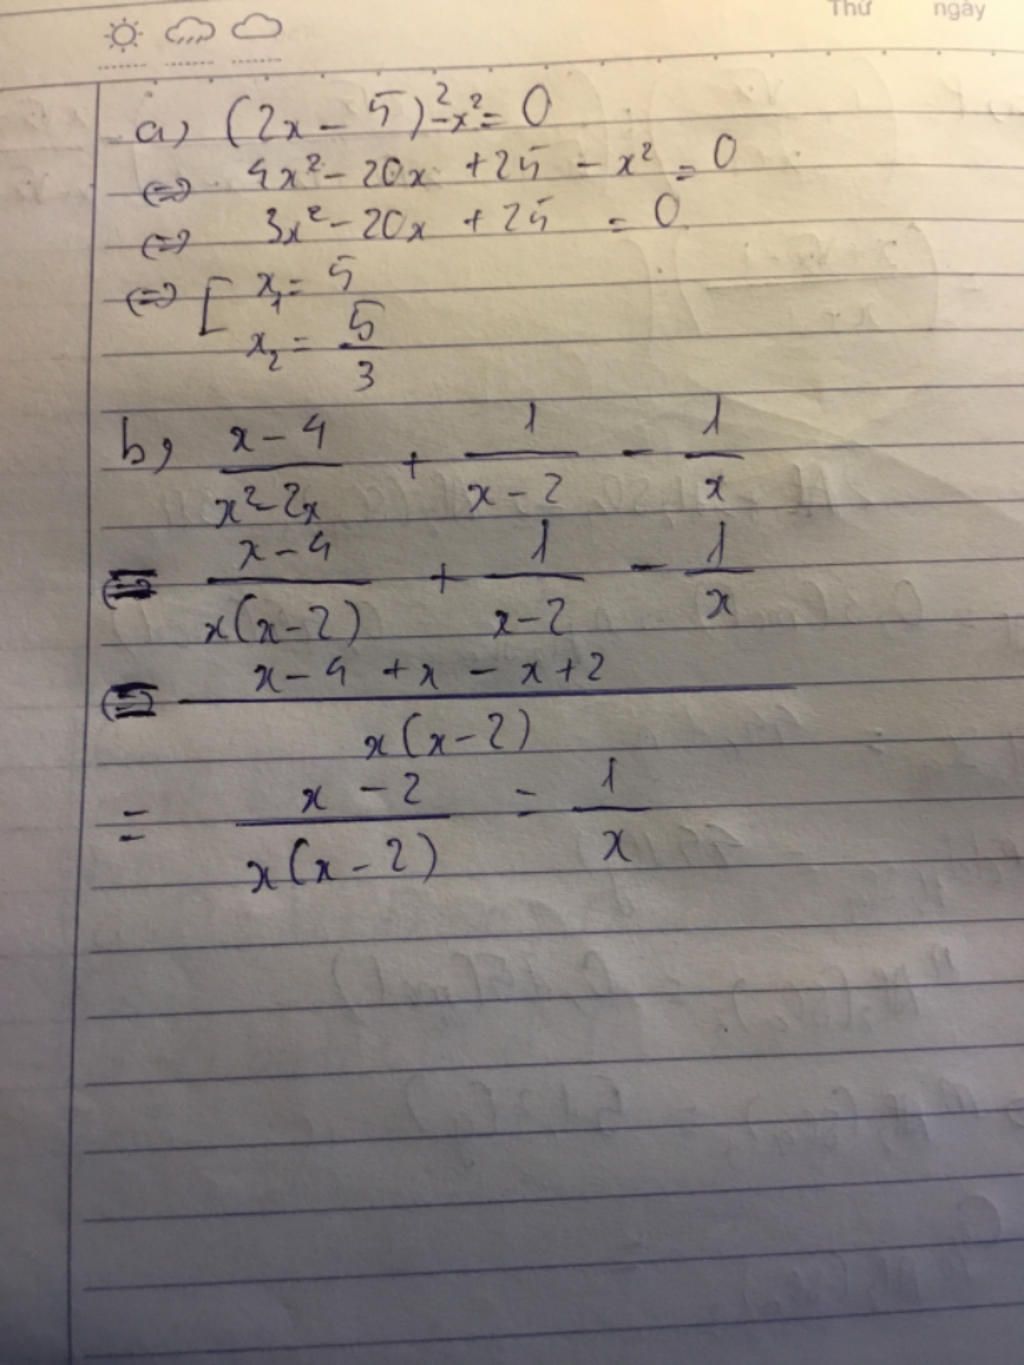 Thứ ngày
a, (2x - 5)² - x² = 0
⇔ 4x² - 20x + 25 - x² = 0
⇔ 3x² - 20x + 25 = 0
⇔ [ x₁ = 5
x₂ = 5/3
b, (x - 4)/(x² - 2x) + 1/(x - 2) - 1/x
= (x - 4)/(x(x - 2)) + 1/(x - 2) - 1/x
= (x - 4 + x - x + 2)/(x(x - 2))
= (x - 2)/(x(x - 2)) = 1/x